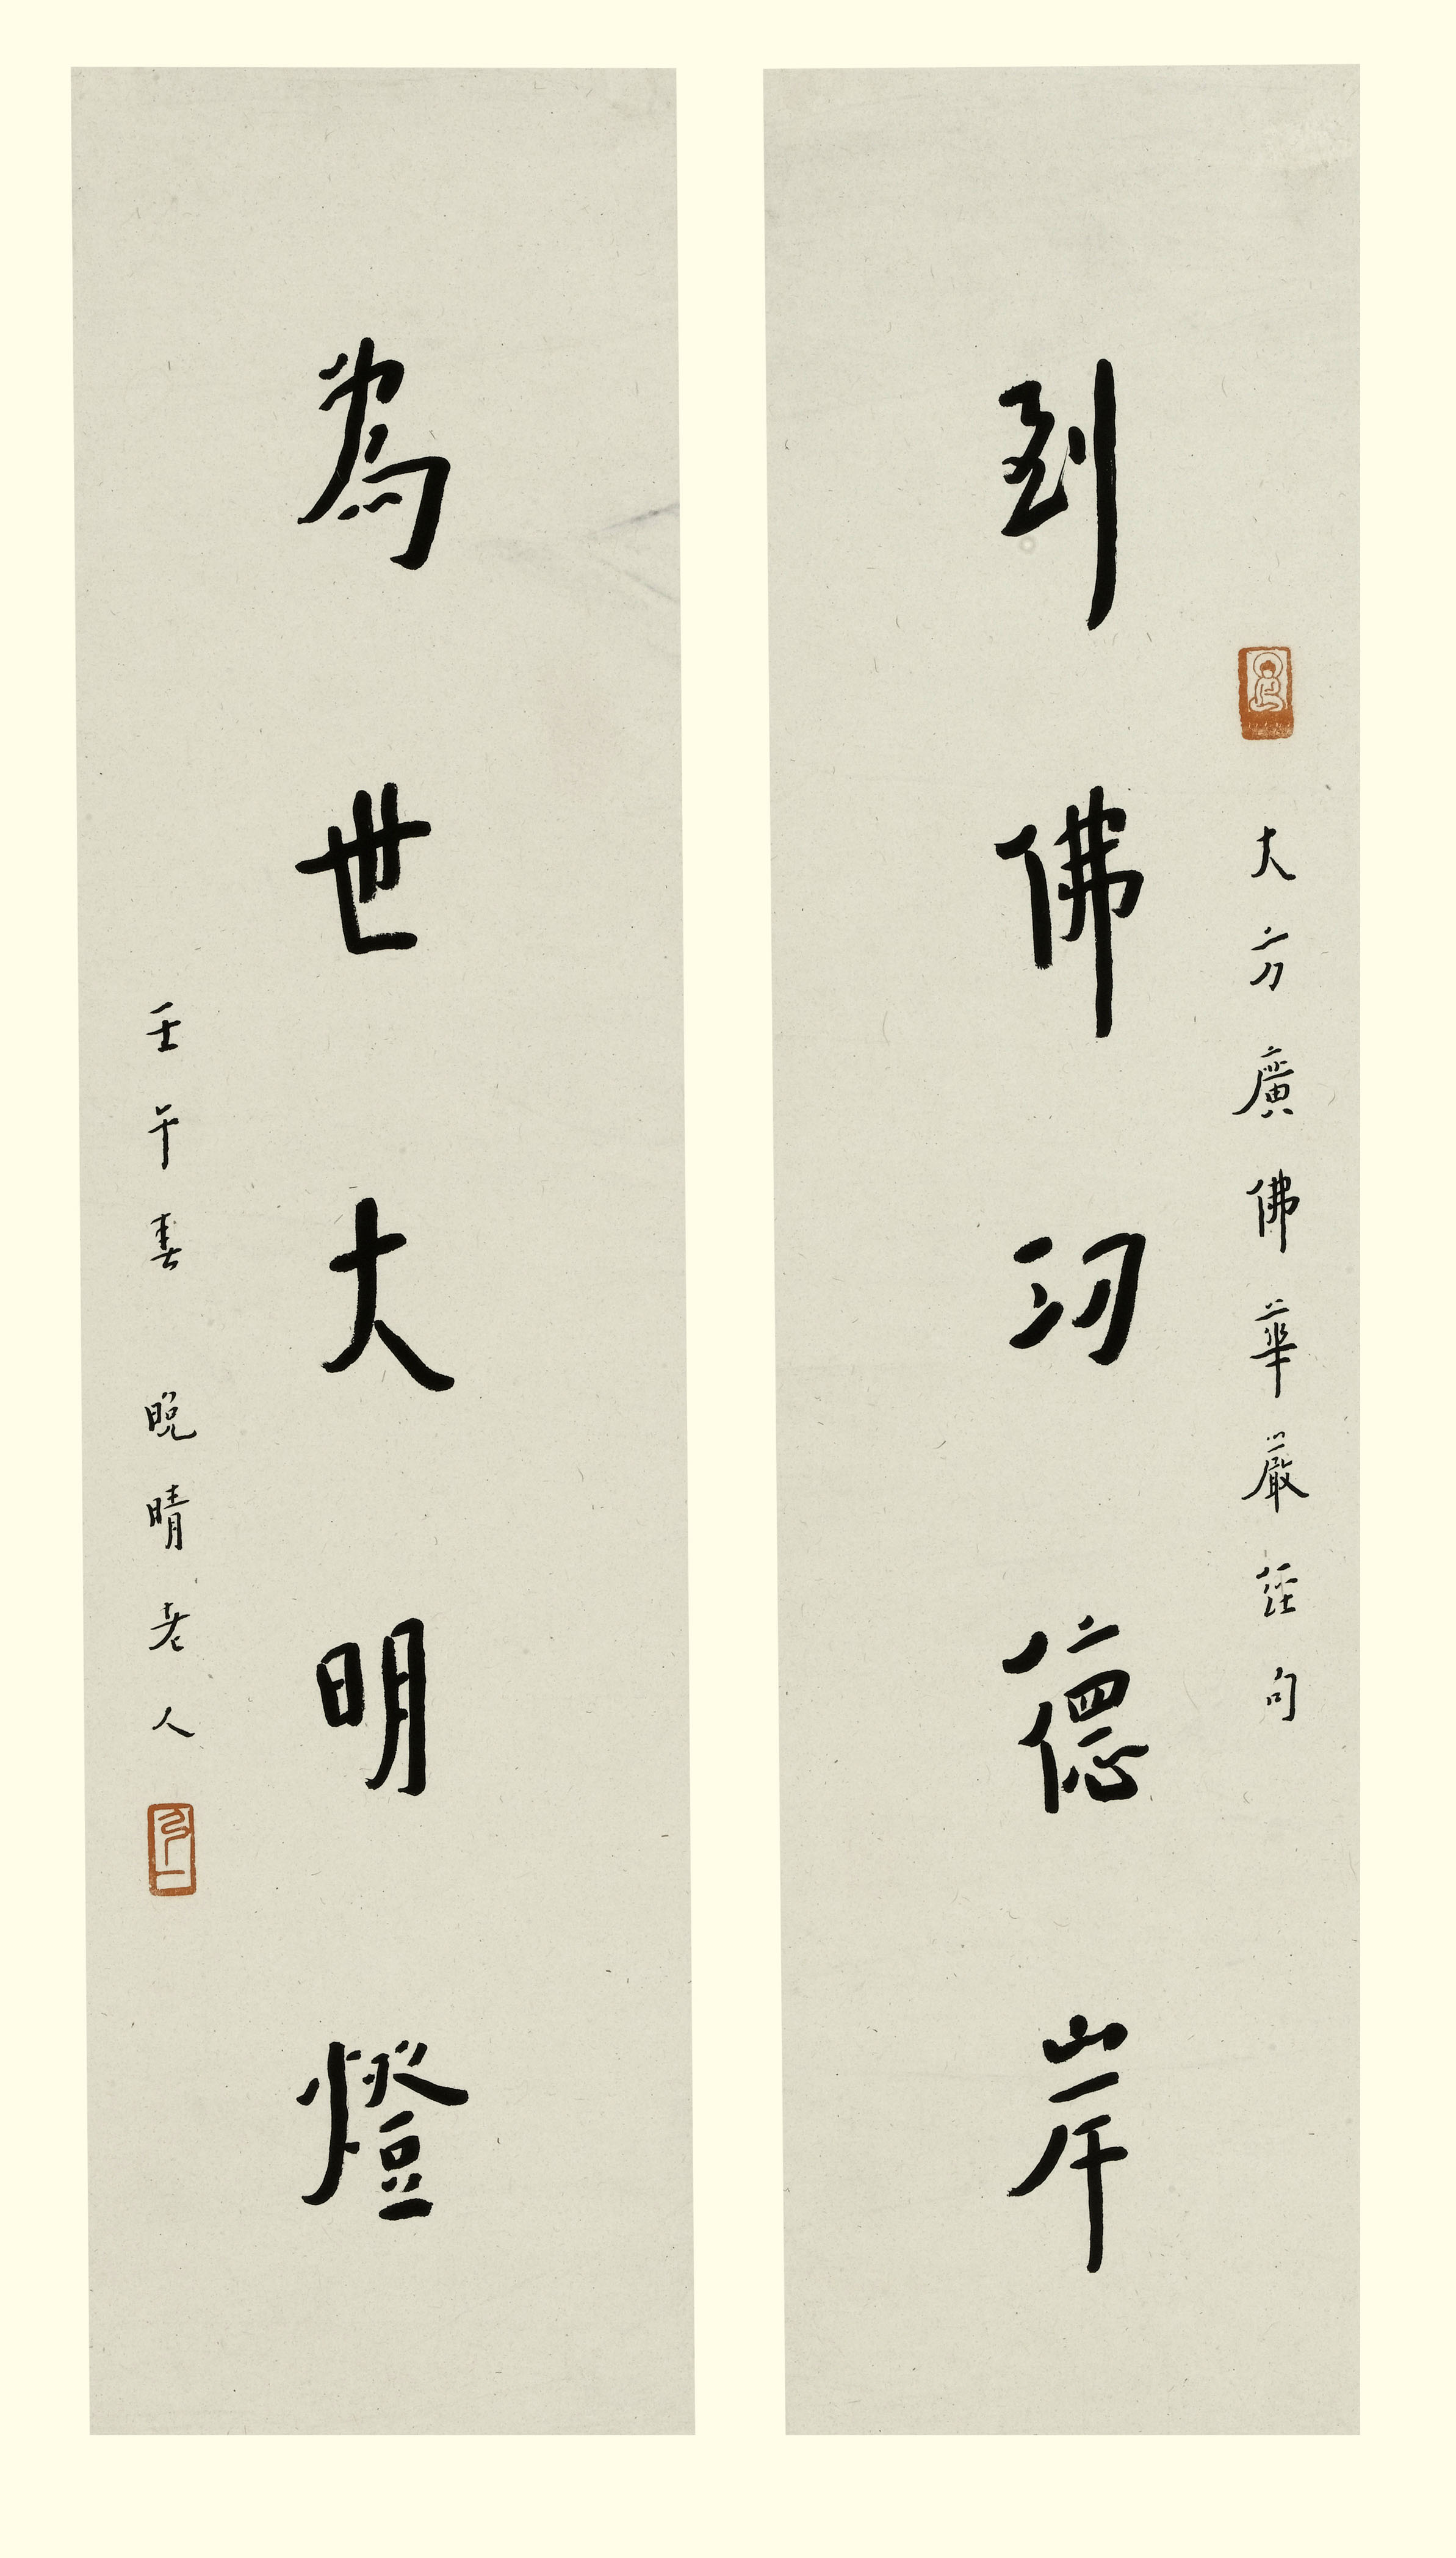 大方廣佛華嚴經句
到佛功德岸
為世大明燈
壬午春 晚晴老人
弘一